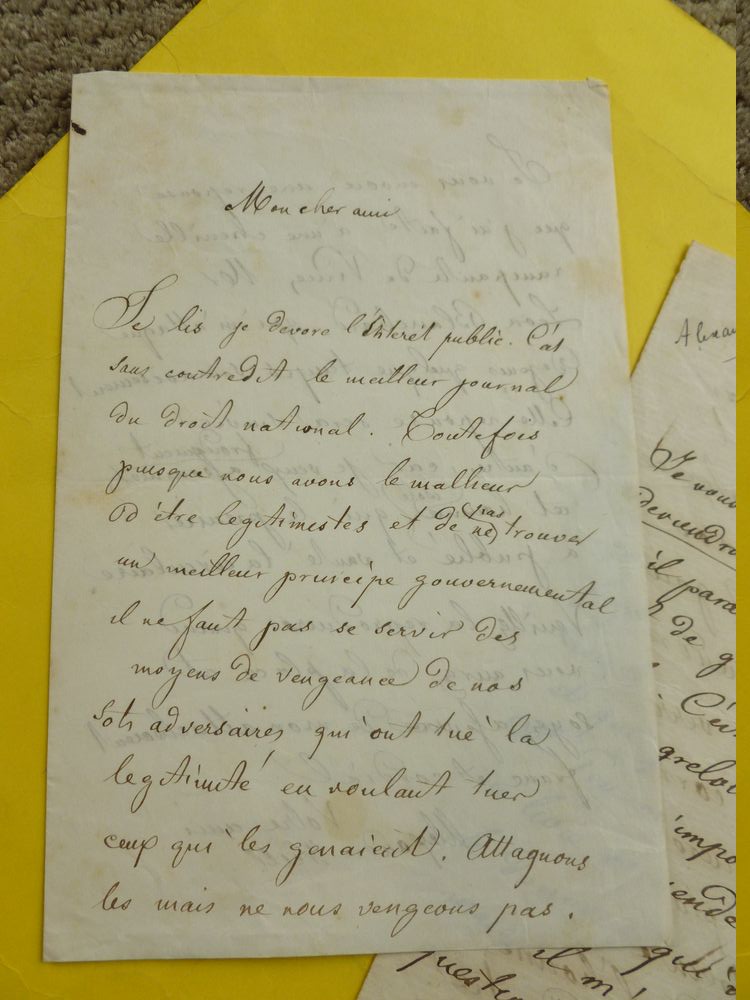 Mon cher ami
Je lis je devore l'Interet public. C'est
sans contredit le meilleur journal
du droit national. Toutefois
puisque nous avons le malheur
d'être legitimistes et de ne pas trouver
un meilleur principe gouvernemental
il ne faut pas se servir des
moyens de vengeance de nos
sots adversaires qui ont tué la
legitimité en voulant tuer
ceux qui les genaient. Attaquons
les mais ne nous vengeons pas.
Je vous
deviendr
il para
de g
C'est
grelo
impo
ende
qu
il m'